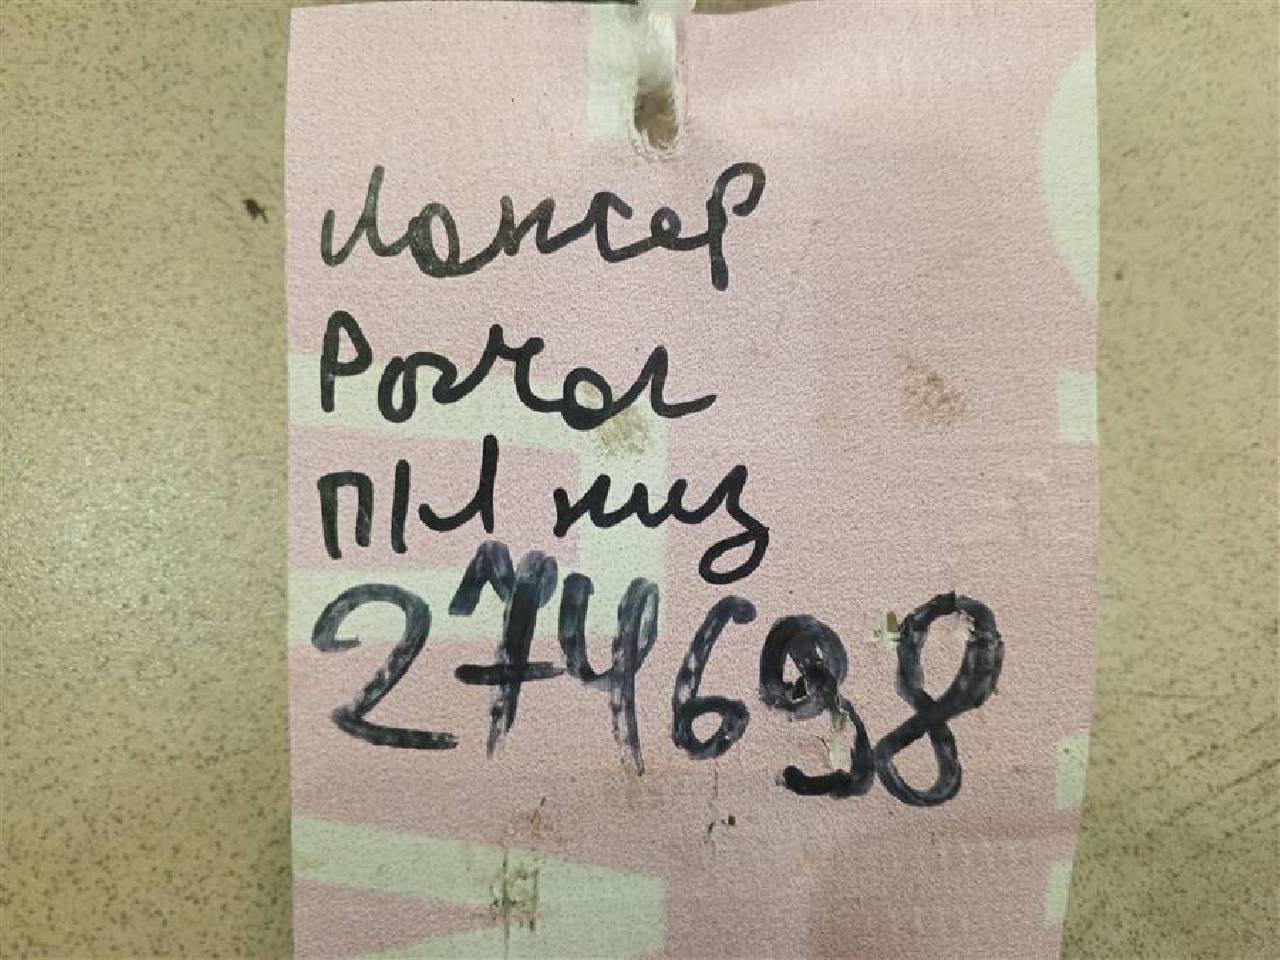 Лансер
Рычаг
П/Л низ
274698